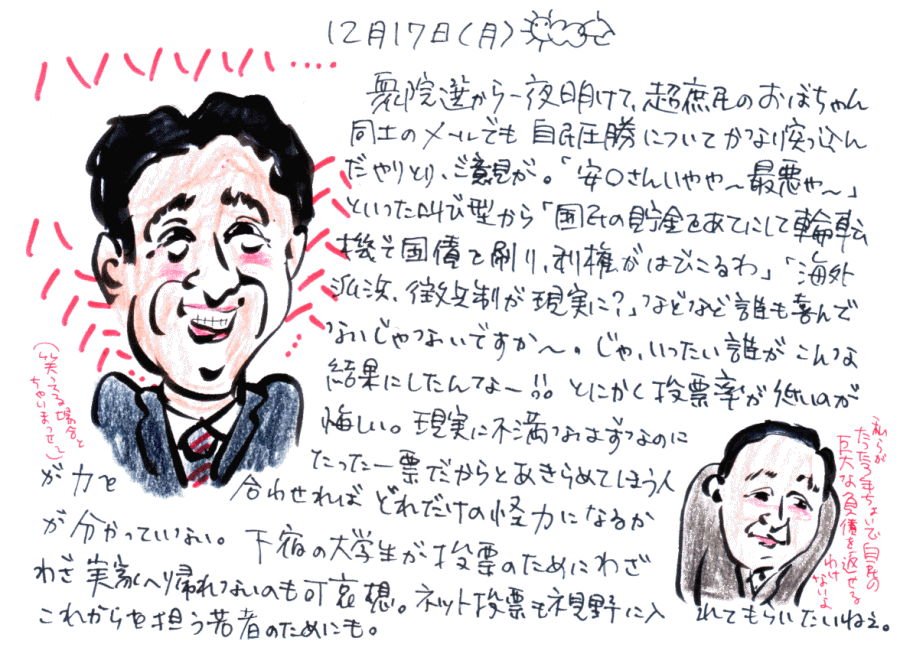 12月17日(月)
ハハハハハ・・・・
衆院選から一夜明けて、超庶民のおばちゃん
同士のメールでも自民圧勝についてかなり突っ込ん
だやりとり、ご意見が。「安〇さんいやや〜最悪や〜」
といった叫び型から「国民の貯金をあてにして輪転
機で国債を刷り、利権がはびこるわ」「海外
派兵、徴兵制が現実に?」などなど誰も喜んで
ないじゃないですか〜。じゃ、いったい誰がこんな
結果にしたんてよー!! とにかく投票率が低いのが
悔しい。現実に不満なはずなのに
たった一票だからとあきらめてしまう人
が力を合わせればどれだけの怪力になるか
が分かっていない。下宿の大学生が投票のためにわざ
わざ実家へ帰れないのも可哀想。ネット投票も視野に入れてもらいたいねぇ。
これからを担う若者のためにも。
ハハ
(笑ってる場合と
ちゃいまっせ〜)
私らが
たった3年ちょいで自民の
巨大な負債を返せる
わけ
ないよ